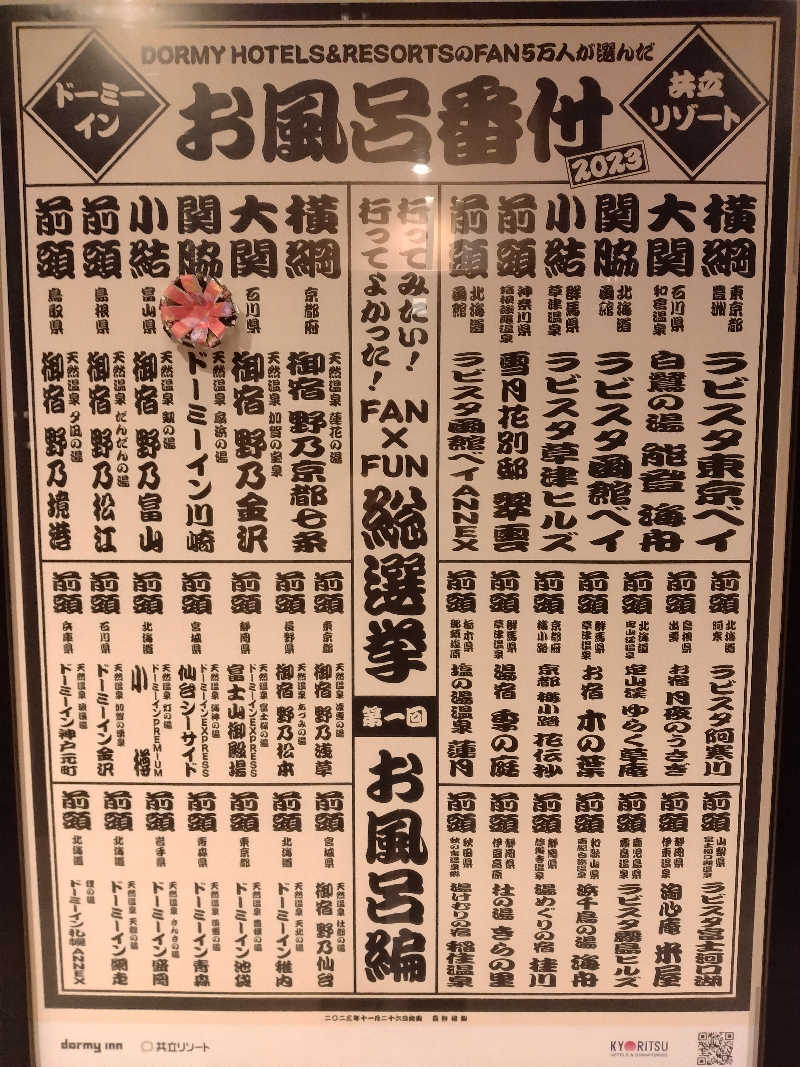 DORMY HOTELS&RESORTSのFAN5万人が選んだ
お風呂番付
2023
ドーミーイン
共立リゾート
横綱
東京都
豊洲
ラビスタ東京ベイ
大関
石川県
和倉温泉
白鷺の湯 能登 海舟
関脇
北海道
函館
ラビスタ函館ベイ
小結
群馬県
草津温泉
ラビスタ草津ヒルズ
前頭
神奈川県
箱根強羅温泉
雪月花別邸 翠雲
前頭
北海道
函館
ラビスタ函館ベイANNEX
行ってみたい!
行ってよかった!
FAN×FUN
総選挙
第一回
お風呂編
横綱
京都府
天然温泉 蓮花の湯
御宿 野乃京都七条
大関
石川県
天然温泉 加賀の宝泉
御宿 野乃金沢
関脇
天然温泉 扇浜の湯
ドーミーイン川崎
小結
富山県
天然温泉 剱の湯
御宿 野乃富山
前頭
島根県
天然温泉 だんだんの湯
御宿 野乃松江
前頭
鳥取県
天然温泉 夕凪の湯
御宿 野乃境港
前頭
北海道
阿寒
ラビスタ阿寒川
前頭
島根県
出雲
お宿 月夜のうさぎ
前頭
北海道
定山渓温泉
定山渓 ゆらく草庵
前頭
群馬県
草津温泉
お宿 木の葉
前頭
京都府
梅小路
京都 梅小路 花伝抄
前頭
群馬県
草津温泉
湯宿 季の庭
前頭
栃木県
那須塩原
塩の湯温泉 蓮月
前頭
東京都
天然温泉 凌雲の湯
御宿 野乃浅草
前頭
長野県
天然温泉 あづみの湯
御宿 野乃松本
前頭
静岡県
天然温泉 富士桜の湯
ドーミーインEXPRESS
富士山御殿場
前頭
宮城県
天然温泉 海神の湯
ドーミーインEXPRESS
仙台シーサイド
前頭
北海道
天然温泉 灯の湯
ドーミーインPREMIUM
小樽
前頭
石川県
天然温泉 加賀の湧泉
ドーミーイン金沢
前頭
兵庫県
天然温泉 浪漫湯
ドーミーイン神戸元町
前頭
山梨県
富士河口湖温泉
ラビスタ富士河口湖
前頭
静岡県
伊東温泉
淘心庵 米屋
前頭
鹿児島県
霧島温泉
ラビスタ霧島ヒルズ
前頭
和歌山県
南紀白浜温泉
浜千鳥の湯 海舟
前頭
静岡県
修善寺温泉
湯めぐりの宿 桂川
前頭
静岡県
伊豆高原
杜の湯 きらの里
前頭
秋田県
秋の宮温泉郷
湯けむりの宿 稲住温泉
前頭
宮城県
天然温泉 杜都の湯
御宿 野乃仙台
前頭
北海道
天然温泉 天北の湯
ドーミーイン稚内
前頭
東京都
天然温泉 豊穣の湯
ドーミーイン池袋
前頭
青森県
ドーミーイン青森
前頭
岩手県
天然温泉 さんさの湯
ドーミーイン盛岡
前頭
北海道
天然温泉 天都の湯
ドーミーイン網走
前頭
北海道
ドーミーイン札幌ANNEX
dormy inn
共立リゾート
KYORITSU
HOTELS & DORMITORIES